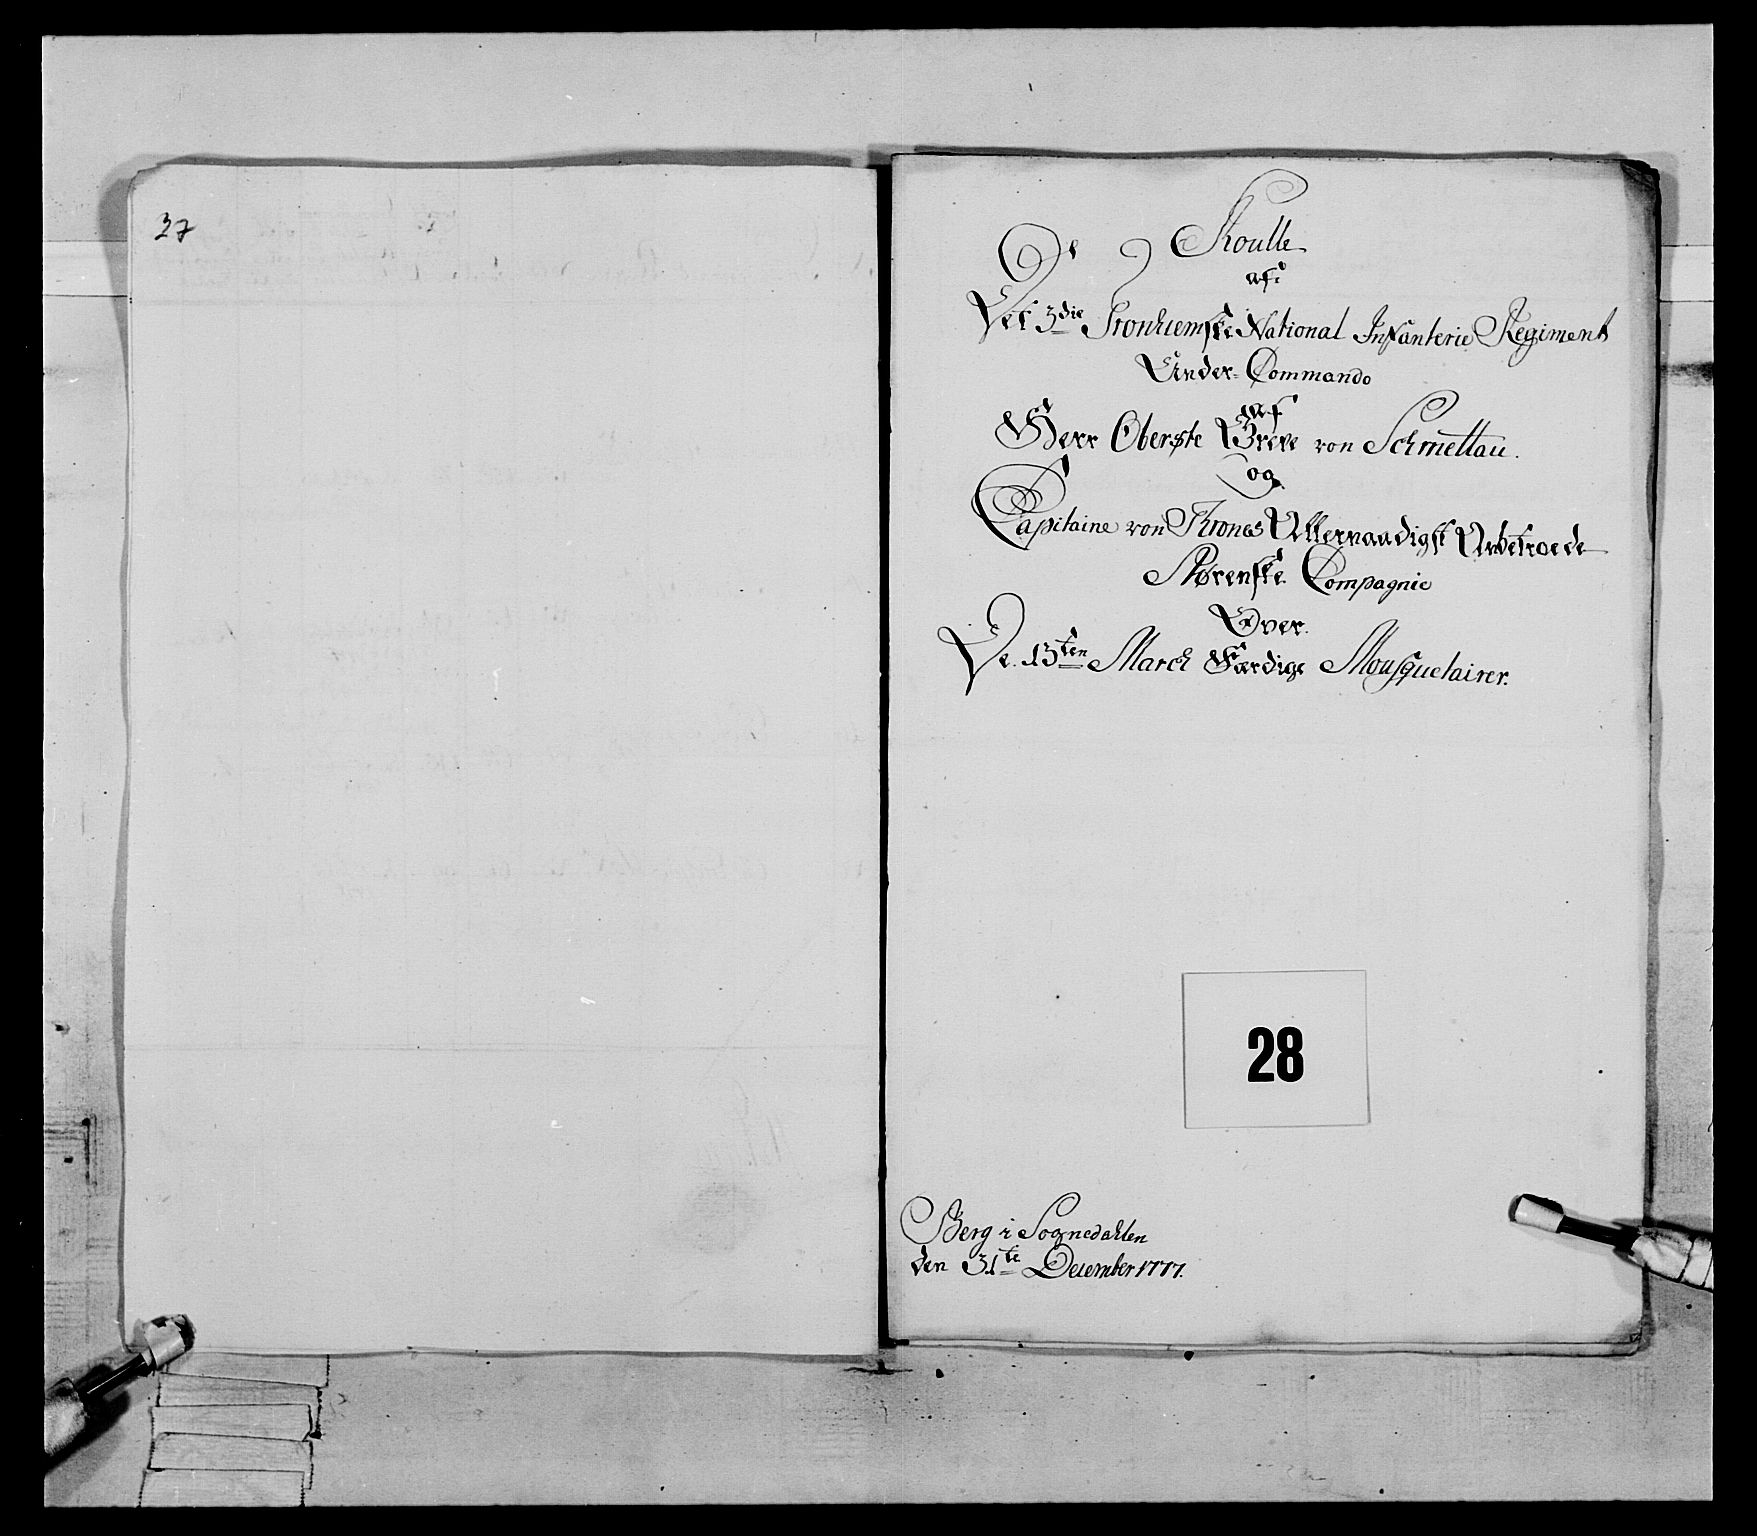 27
Roulle
af
Det 3die Tronhiemske National Infanterie Regiment
Under Commando
af
Herr Oberste Greve von Schmettau.
og
Capitaine von Krones Allernaadigst Anbetroede
Størenske Compagnie
Over
De 13ten March Færdige Mousquetairer.
28
Berg i Sognedahlen
den 31te December 1777.